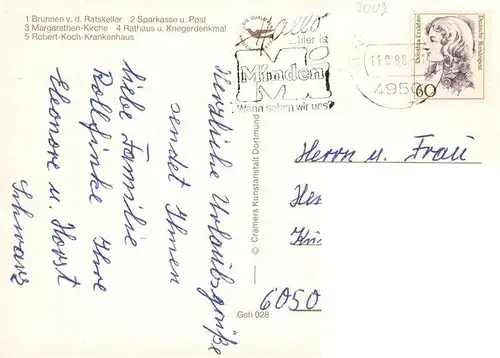 1 Brunnen v. d. Ratskeller 2 Sparkasse u. Post
3 Margarethen-Kirche 4 Rathaus u. Kriegerdenkmal
5 Robert-Koch-Krankenhaus
Hallo
...hier ist
Minden
Wann sehen wir uns?
3009
495
Dorothea Erxleben
Deutsche Bundespost
60
Herzliche Urlaubsgrüße
sendet Ihnen
liebe Familie
Rollfinke Ihre
Eleonore u. Horst
Schwarz
© Cramers Kunstanstalt Dortmund
Geh 028
Herrn u. Frau
6050